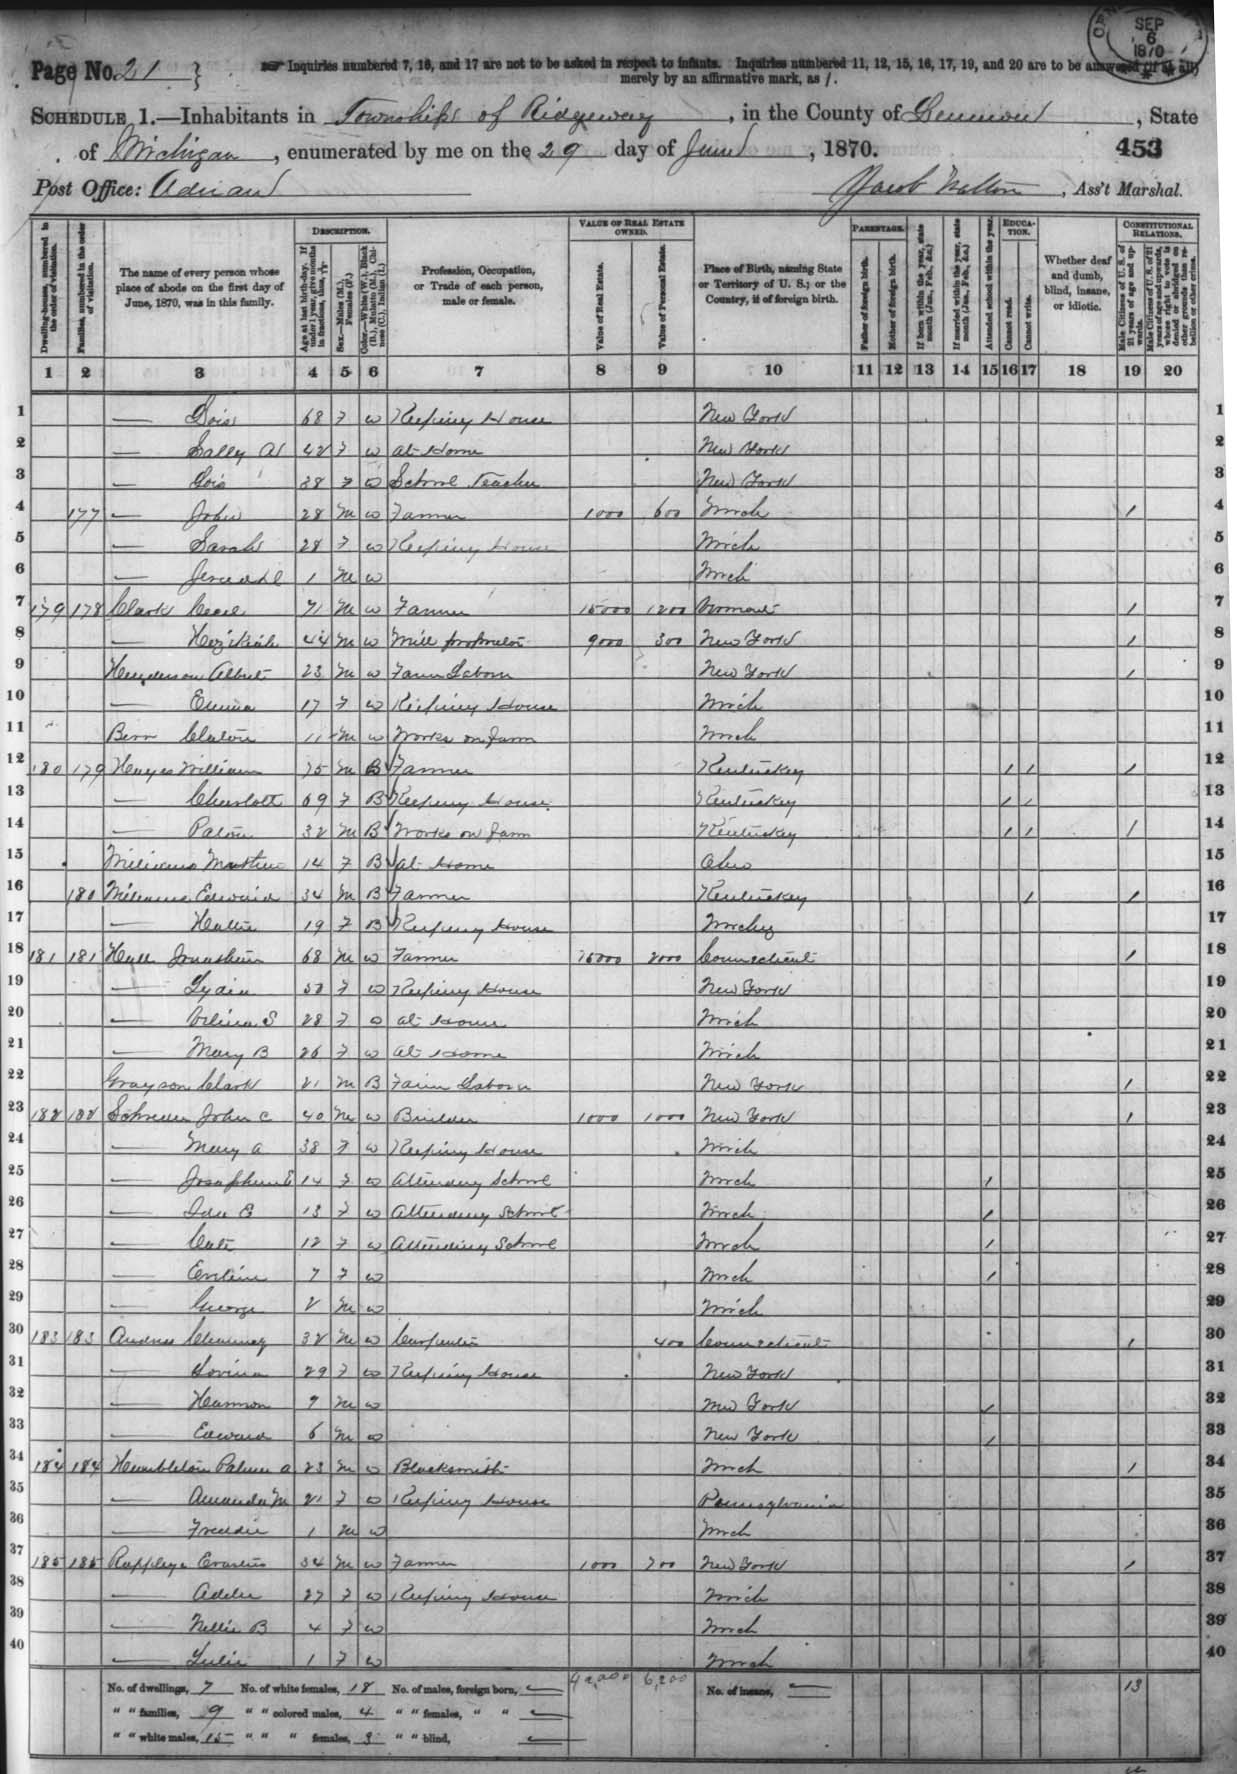 SEP
6
1870
Page No. 21 }
Inquiries numbered 7, 16, and 17 are not to be asked in respect to infants. Inquiries numbered 11, 12, 15, 16, 17, 19, and 20 are to be answered (if at all)
merely by an affirmative mark, as /.
SCHEDULE 1.—Inhabitants in Townships of Ridgeway, in the County of, State
of Michigan, enumerated by me on the 29 day of June, 1870. 453
Post Office: Adrian Jacob Walton, Ass't Marshal.
DESCRIPTION. VALUE OF REAL ESTATE OWNED. PARENTAGE. EDUCATION. CONSTITUTIONAL RELATIONS.
Dwelling-houses, numbered in the order of visitation.
Families, numbered in the order of visitation.
The name of every person whose place of abode on the first day of June, 1870, was in this family.
Age at last birth-day. If under 1 year, give months in fractions, thus, 3/12.
Sex.—Males (M.), Females (F.)
Color.—White (W.), Black (B.), Mulatto (M.), Chinese (C.), Indian (I.)
Profession, Occupation, or Trade of each person, male or female.
Value of Real Estate.
Value of Personal Estate.
Place of Birth, naming State or Territory of U. S.; or the Country, if of foreign birth.
Father of foreign birth.
Mother of foreign birth.
If born within the year, state month (Jan., Feb., &c.)
If married within the year, state month (Jan., Feb., &c.)
Attended school within the year.
Cannot read.
Cannot write.
Whether deaf and dumb, blind, insane, or idiotic.
Male Citizens of U. S. of 21 years of age and upwards.
Male Citizens of U. S. of 21 years of age and upwards, whose right to vote is denied or abridged on other grounds than rebellion or other crime.
1 2 3 4 5 6 7 8 9 10 11 12 13 14 15 16 17 18 19 20
1 — Lois 68 F W Keeping House New York 1
2 — Sally A 42 F W at Home New York 2
3 — Lois 38 F W School Teacher New York 3
4 177 — John 28 M W Farmer 1000 600 Mich / 4
5 — Sarah 28 F W Keeping House Mich 5
6 — 1 M W Mich 6
7 179 178 Clark 71 M W Farmer 15000 1200 Vermont / 7
8 — Hezikiah 44 M W Mill proprietor 9000 300 New York / 8
9 Henderson Albert 23 M W Farm Labor New York / 9
10 — Emma 17 F W Keeping House Mich 10
11 11 M W Works on farm Mich 11
12 180 179 Hayes William 75 M B Farmer Kentuckey / / / 12
13 — Charlott 69 F B Keeping House Kentuckey / / 13
14 — 32 M B Works on farm Kentuckey / / / 14
15 Williams 14 F B at Home Ohio 15
16 180 Williams Edward 34 M B Farmer Kentuckey / / 16
17 — Hattie 19 F B Keeping House 17
18 181 181 Hall Jonathan 68 M W Farmer 2000 Connecticut / 18
19 — Lydia 58 F W Keeping House New York 19
20 — 28 F W at Home Mich 20
21 — Mary B 26 F W at Home Mich 21
22 Grayson Clark 21 M B Farm Labor New York / 22
23 182 182 Schreder John C 40 M W Builder 1000 1000 New York / 23
24 — Mary A 38 F W Keeping House Mich 24
25 — Josephine E 14 F W Attending School Mich / 25
26 — Ida E 13 F W Attending School Mich / 26
27 — Cate 12 F W Attending School Mich / 27
28 — 7 F W Mich / 28
29 — George 2 M W Mich 29
30 183 183 Andrus Chauncey 32 M W Carpenter 400 Connecticut / 30
31 — Lovina 29 F W Keeping House New York 31
32 — Harmon 9 M W New York / 32
33 — Edward 6 M W New York / 33
34 184 184 Hambleton Palmer A 23 M W Blacksmith Mich / 34
35 — Amanda M 21 F W Keeping House Pennsylvania 35
36 — Freddie 1 M W Mich 36
37 185 185 Rappleye Erastus 34 M W Farmer 1000 700 New York / 37
38 — Addie 27 F W Keeping House Mich 38
39 — Nellie B 4 F W Mich 39
40 — 1 F W Mich 40
No. of dwellings, 7 No. of white females, 18 No. of males, foreign born, — 42,000 6,200 No. of insane, — 13
" " families, 9 " " colored males, 4 " " females, " " —
" " white males, 15 " " " females, 3 " " blind, —